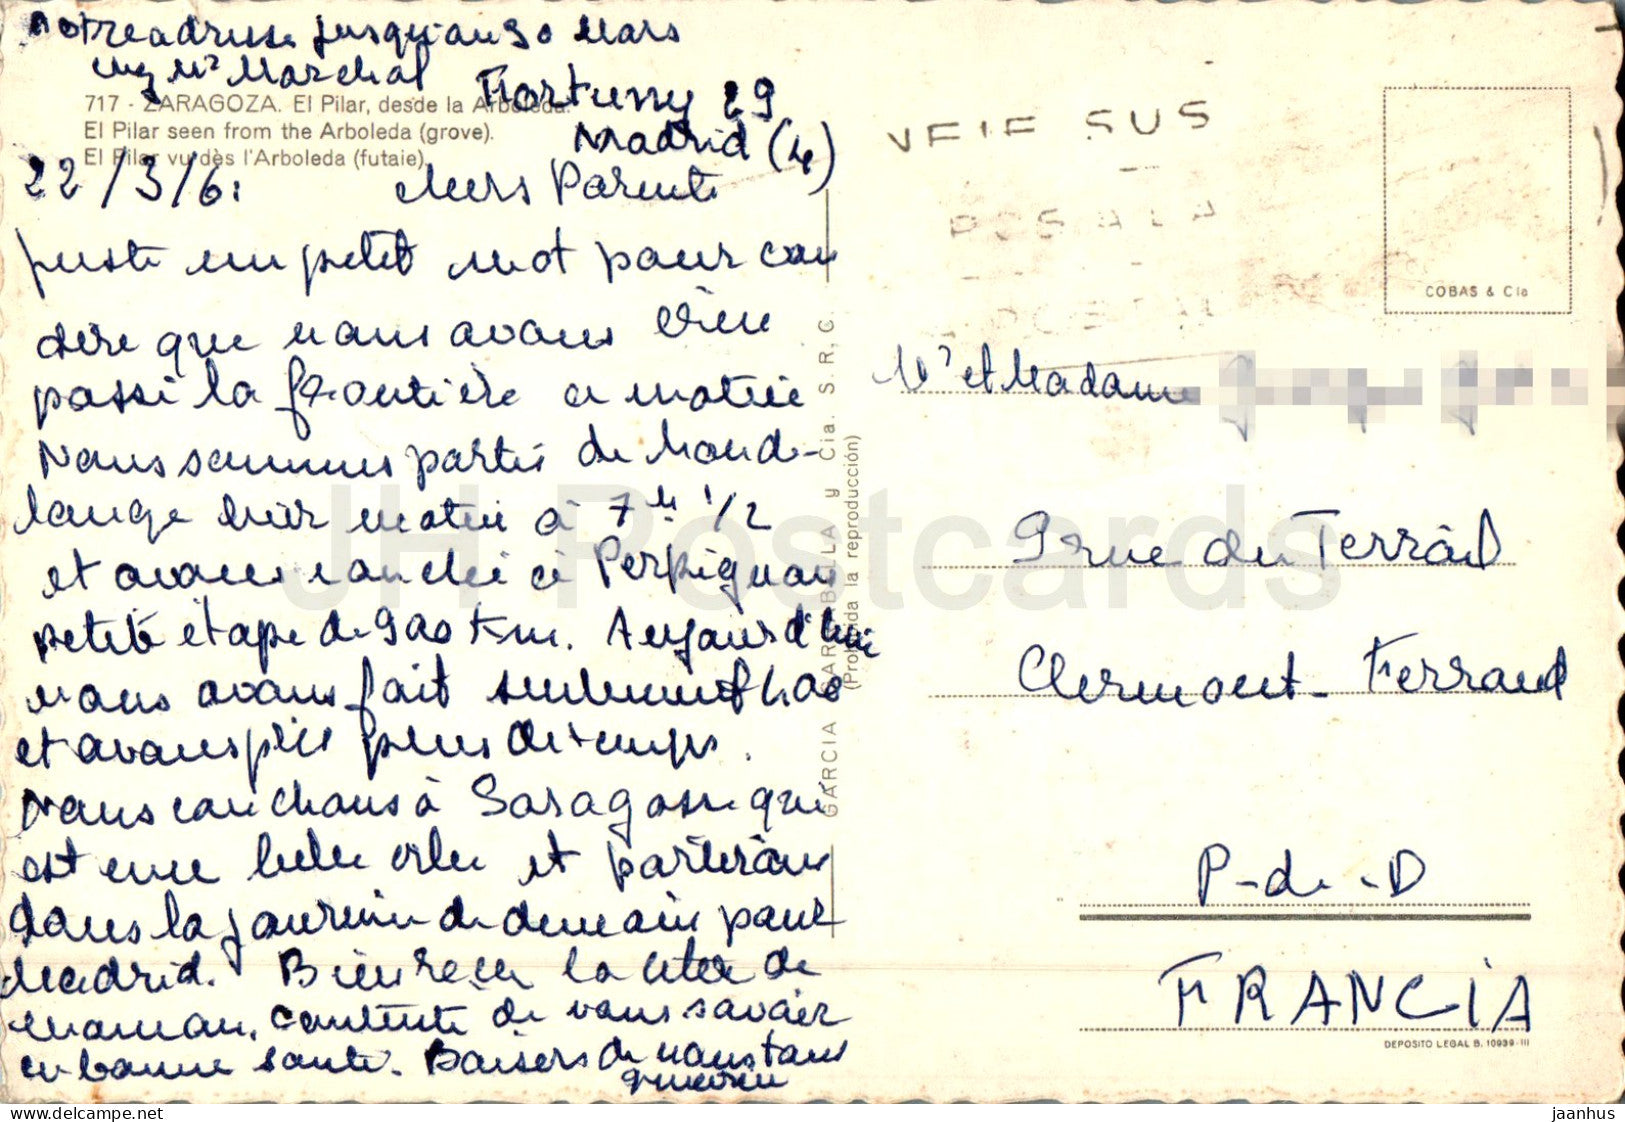 notre adresse jusqu'au 30 Mars
chez Mr Marchal Fortuny 29
Madrid (4)
717 - ZARAGOZA. El Pilar, desde la Arboleda.
El Pilar seen from the Arboleda (grove).
El Pilar vu dès l'Arboleda (futaie).
22/3/61 chers Parents
juste un petit mot pour vous
dire que nous avons bien
passé la frontière ce matin
Nous sommes partis de
hier matin à 7h 1/2
et avons couché à Perpignan
petite étape de 900 km. Aujourd'hui
nous avons fait seulement 400
et avons pris plus de temps.
Nous couchons à Saragosse qui
est une belle ville et partirons
dans la journée de demain pour
Madrid. Bien reçu la lettre de
maman, contente de vous savoir
en bonne santé. Baisers de nous tous
GARCIA GARRABELLA y Cia. S. R. C.
(Prohibida la reproducción)
POSTAL
COBAS & Cia
Mr et Madame
9 rue du Terrail
Clermont-Ferrand
P-de-D
FRANCIA
DEPOSITO LEGAL B. 10939-III
JH Postcards
delcampe.net
jaanhus